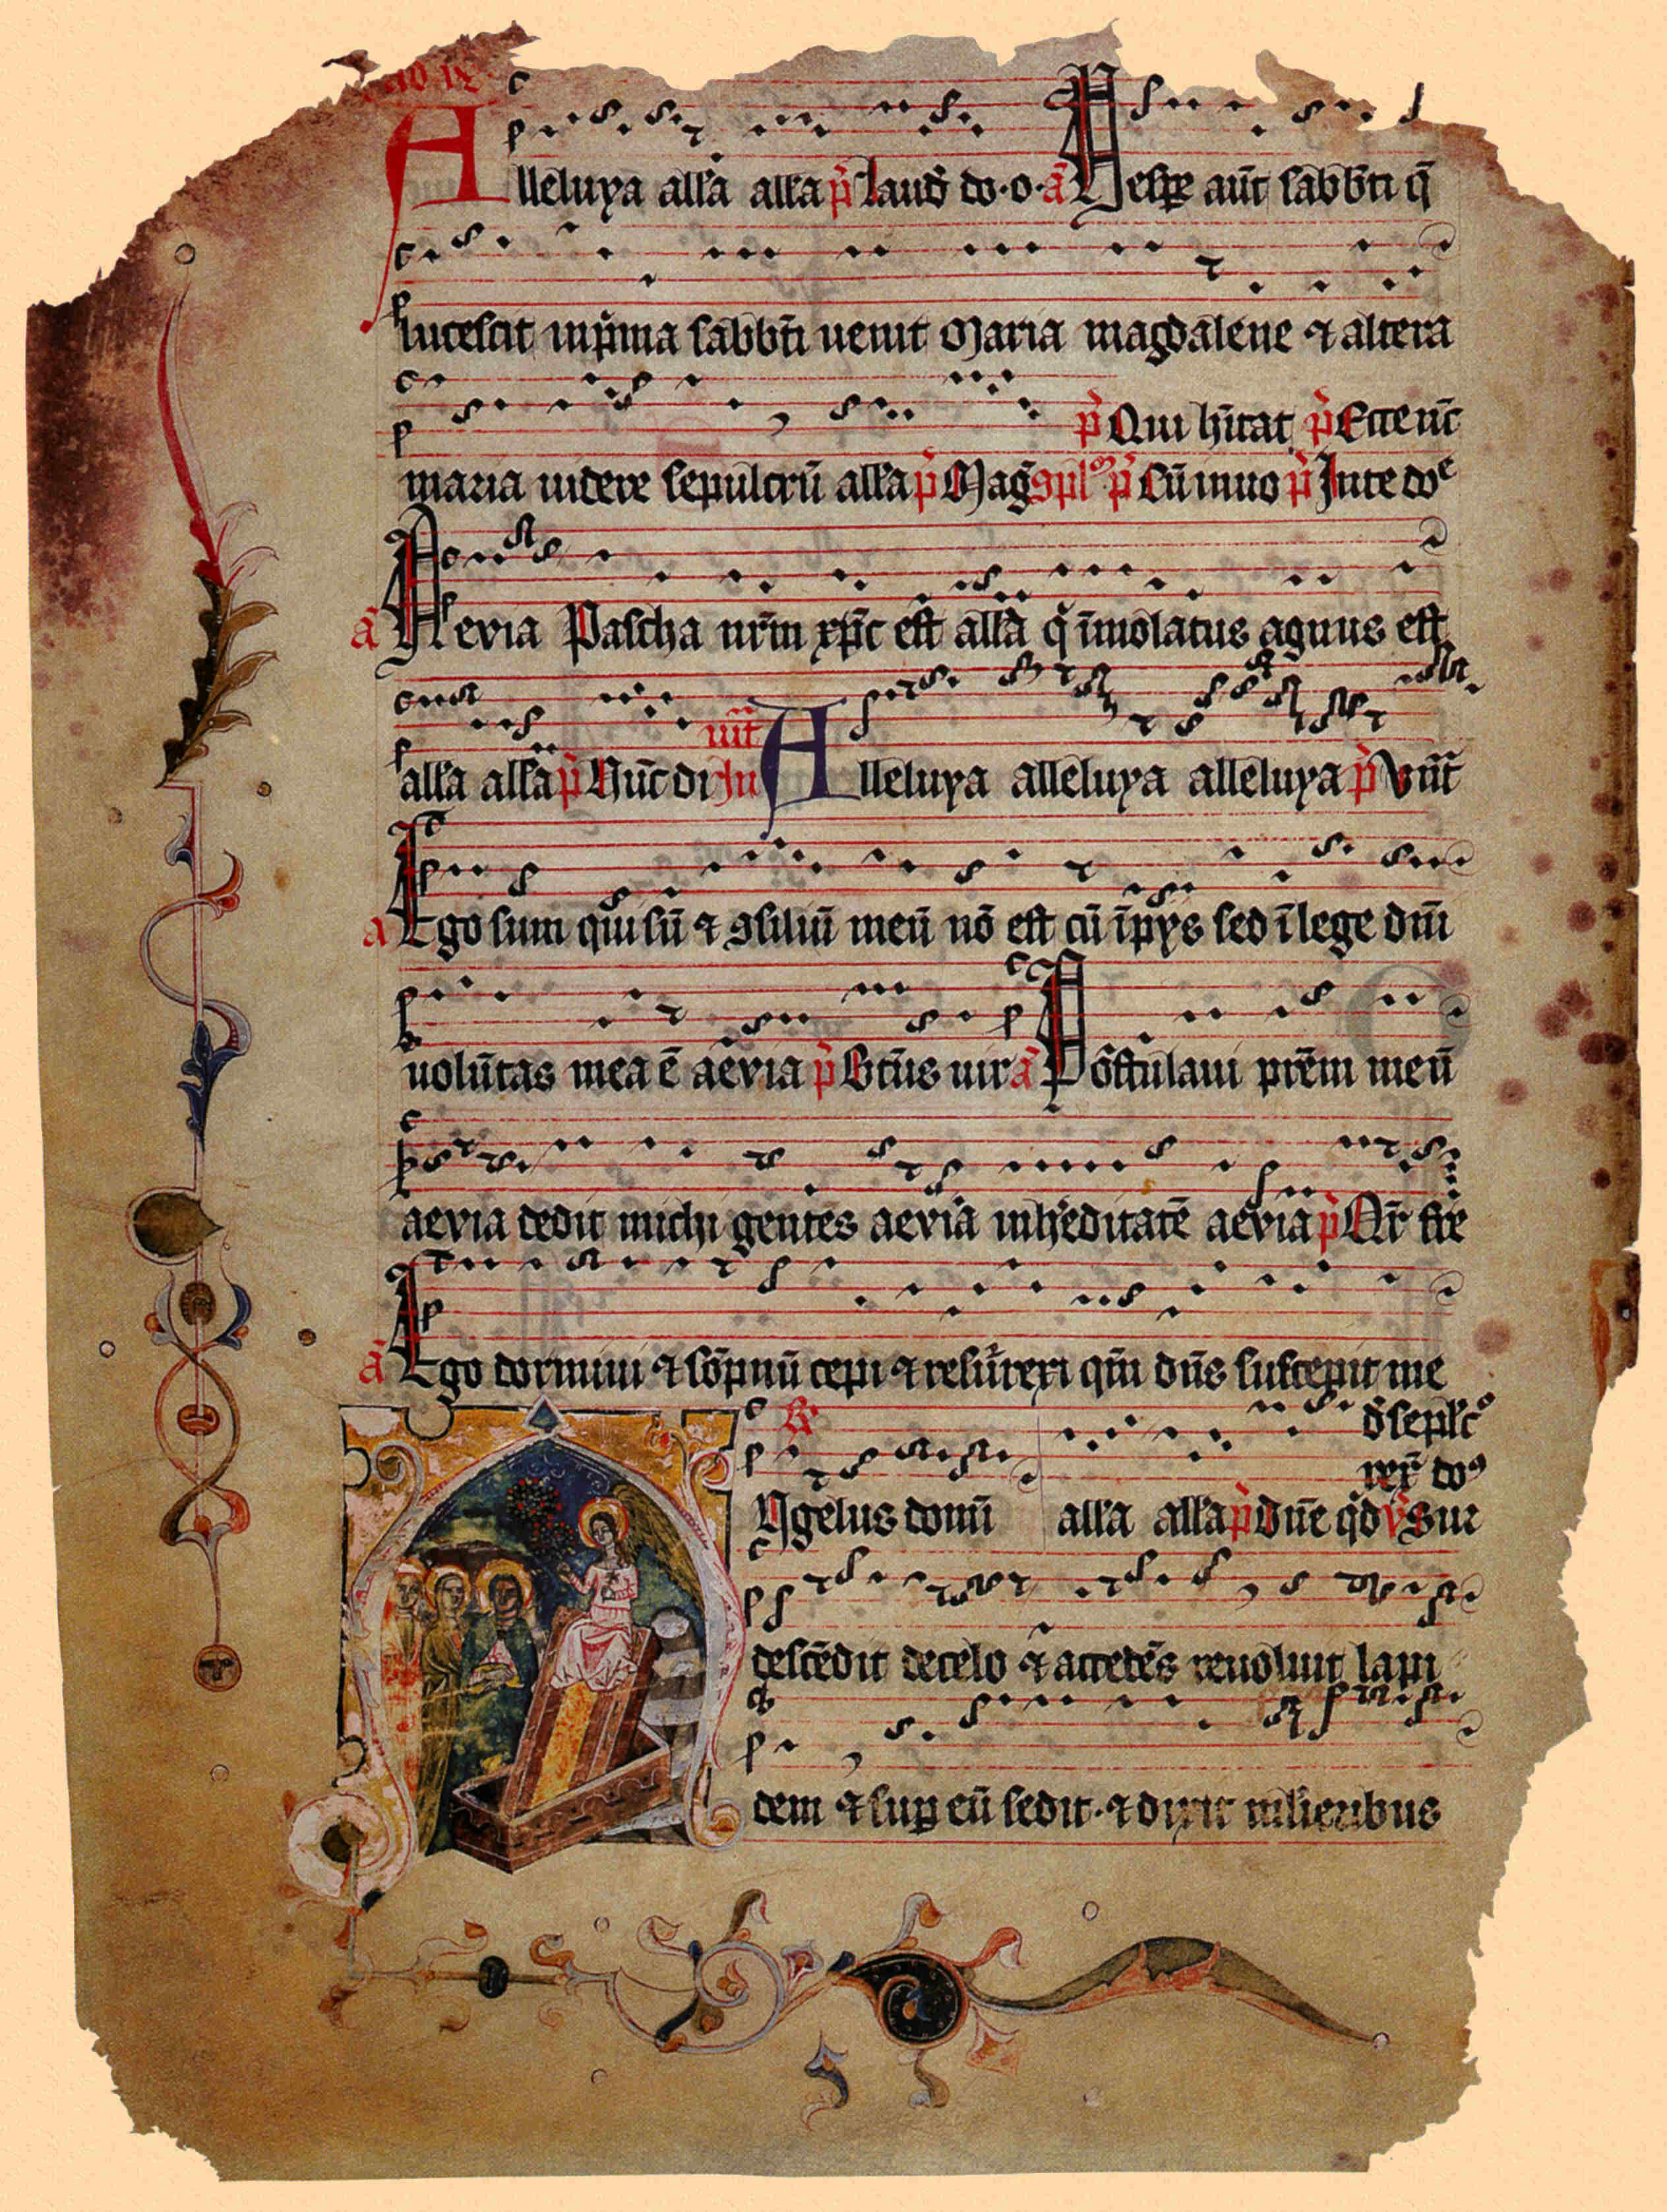 Alleluya all'a all'a p̄ laud' do·o· ā Vesꝑe aūt sabb'ti q̄
lucescit inp'ma sabb'ti uenit Maria magdalene ⁊ altera
p̄ Qui h'itat p̄ Ecce nūc
maria uidere sepulcrū all'a p̄ Maḡ ꝯpl' p̄ Cū inuo p̄ Inte do
ā Aevia Pascha nr̄m xp̄c est all'a q' īmolatus agnus est
all'a all'a p̄ Nūc di Alleluya alleluya alleluya p̄
ā Ego sum qui sū ⁊ ꝯsiliū meū nō est cū īpijs sed ī lege dn̄i
uolūtas mea ē aevia p̄ Btūs uir ā Postulaui prēm meū
aevia dedit michi gentes aevia inh'editatē aevia p̄ Qr̄ fre
ā Ego dormiui ⁊ sōpnū cepi ⁊ resurrexi qm̄ dn̄s suscepit me
Angelus domī all'a all'a p̄ Dn̄e qd
descēdit decelo ⁊ accedēs reuoluit lapi
dem ⁊ suꝑ eū sedit · ⁊ dixit mulieribus